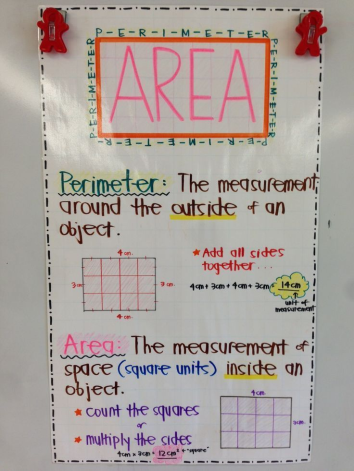 P-E-R-I-M-E-T-E-R
P-E-R-I-M-E-T-E-R
AREA
P-E-R-I-M-E-T-E-R
P-E-R-I-M-E-T-E-R
Perimeter: The measurement
around the outside of an
object.
4 cm.
3cm
3cm.
4 cm.
* Add all sides
together...
4cm + 3cm + 4cm + 3cm = 14cm
unit of
measurement
Area: The measurement of
space (square units) inside an
object.
* count the squares
or
* multiply the sides
4cm x 3cm = 12cm² * "square"
4cm.
3cm.